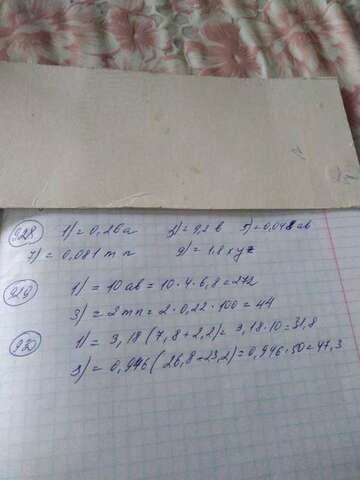 928 1) = 0,26a 3) = 9,2b 5) = 0,048ab
7) = 0,081mn 9) = 1,8xyz
929 1) = 10ab = 10·4·6,8 = 272
3) = 2mn = 2·0,22·100 = 44
930 1) = 3,18(7,8+2,2) = 3,18·10 = 31,8
3) = 0,946(26,8+23,2) = 0,946·50 = 47,3